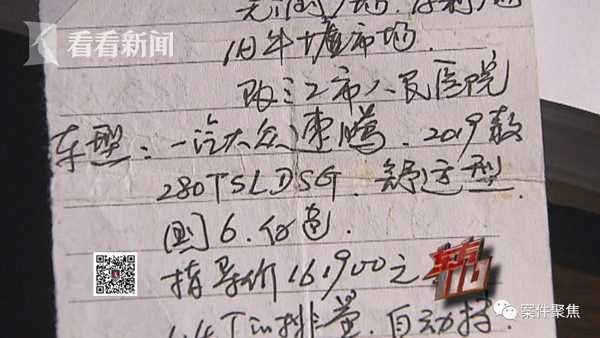 看看新闻
旧牛墟市场.
阳江市人民医院
车型:一汽大众速腾.2019款
280TSI.DSG.舒适型.
国6.白色.
指导价16.1900元
1.4T的排量.自动挡.
案件聚焦